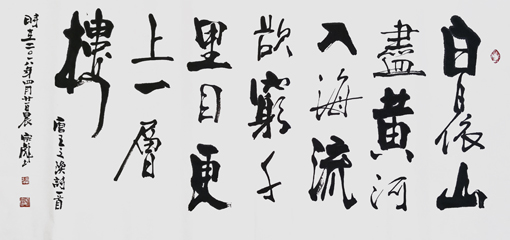 白日依山
盡黄河
入海流
欲窮千
里目更
上一層
樓
唐王之渙詩一首
時在二〇一六年四月廿日晨